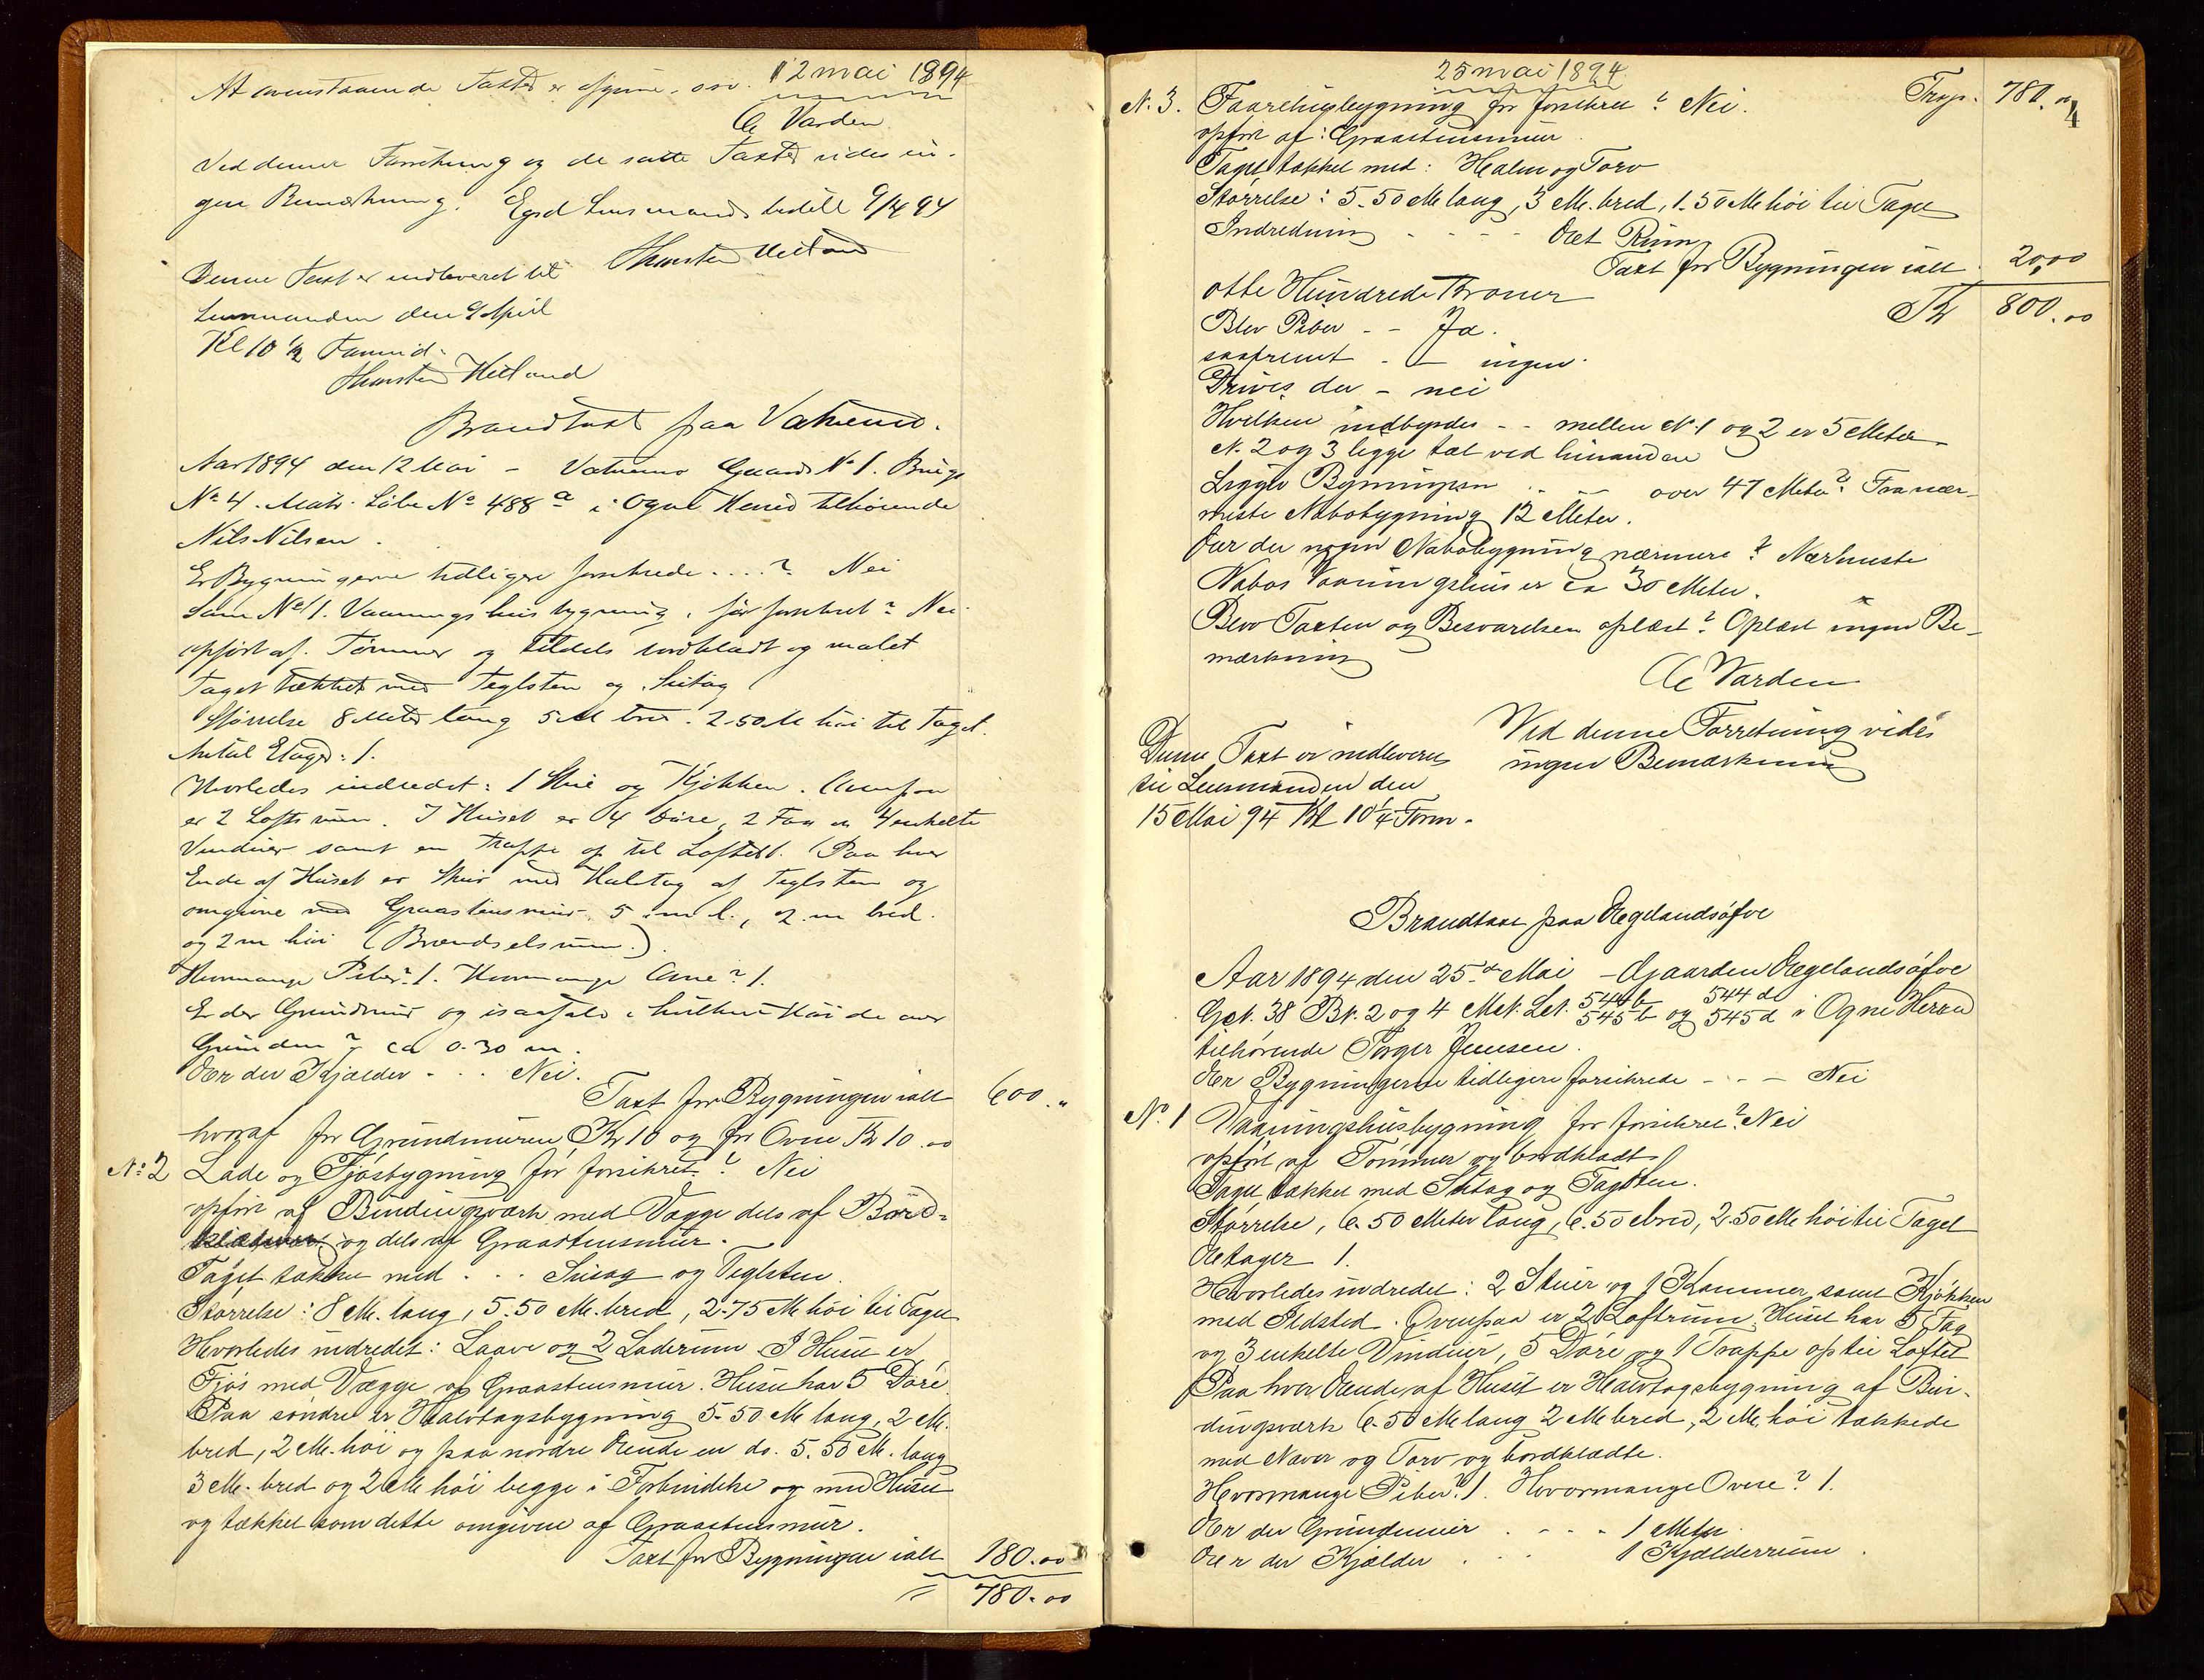 12 mai 1894
At ovenstaaende Taxter er afgivne osv.
A Varden
Ved denne Forretning og de satte Taxter vides in-
gen Bemærkning. Egsd Lensmandsbestill 9/4 94
Thorsten Hetland
Denne Taxt er indleveret til
Lensmanden den 9 April
Kl 10 1/2 Formid.
Thorsten Hetland
Brandtaxt paa Vatnemo.
Aar 1894 den 12 Mai - Vatnemo Gaards No 1. Brugs
No 4. Matr. Løbe No 488 a i Ogne Herred tilhørende
Nils Nilsen.
Er Bygningerne tidligere forsikrede ...? Nei
Som No 1. Vaaningshusbygning, før forsikret? Nei.
opført af. Tømmer og tildels bordklædt og malet
Taget tækket med Teglsten og Sutag
Størrelse 8 Meter lang 5 M bred. 2-50 M høi til Taget.
Antal Etager: 1.
Hvorledes indredet: 1 Stue og Kjøkken. Ovenpaa
er 2 Loftsrum. I Huset er 4 Døre, 2 Fag og 4 enkelte
Vinduer samt en Trappe op til Loftet. Paa hver
Ende af Huset er Skur med Halvtag af Teglsten og
omgivne med Graastensmur. 5 m l., 2 m bred.
og 2 m høi (Brændselsrum.)
Hvormange Piber? 1. Hvormange Ovne? 1.
Er der Grundmur og isaafald i hvilken Høide over
Grunden? ca 0.30 m.
Er der Kjælder - .. Nei.
Taxt for Bygningen ialt 600."
hvoraf for Grundmuren Kr 10 og for Ovne Kr 10.00
No 2 Lade og Fjøsbygning før forsikret? Nei
opført af Bindingsværk med Vægge dels af Bord-
og dels af Graastensmur.
Taget tækket med ... Sutag og Teglsten.
Størrelse: 8 M. lang, 5.50 M. bred, 2-75 M høi til Taget
Hvorledes indredet: Laave og 2 Laderum. I Huset er
Fjøs med Vægge af Graastensmur. Huset har 5 Døre.
Paa søndre er Halvtagsbygning 5-50 M lang, 2 M.
bred, 2 M. høi og paa nordre Ende en do. 5.50 M. lang
3 M. bred og 2 M høi begge i Forbindelse og med Huset
og tækket som dette omgivne af Graastensmur.
Taxt for Bygningen ialt 180.00
780.00
25 mai 1894
4
N. 3. Faarehusbygning før forsikret? Nei. Trsp. 780.00
opført af: Graastensmur
Taget tækket med: Halm og Torv
Størrelse: 5.50 M lang, 3 M. bred, 1.50 M høi til Taget
Indredning - - - - Et Rum
Taxt for Bygningen ialt 20,00
otte Hundrede Kroner Kr 800.00
Blev Piber - - Ja.
saafremt - - ingen.
Drives der - nei
Hvilken indbyrdes - - mellem N. 1 og 2 er 5 Meter
N. 2 og 3 ligge tæt ved hinanden
Ligger Bygningen - - over 47 Meter? Fra nær-
meste Nabobygning 12 Meter.
Er der nogen Nabobygning nærmere? Nærmeste
Nabos Vaaningshus er ca 30 Meter.
Blev Taxten og Besvarelsen oplæst? Oplæst ingen Be-
mærkning
A Varden
Ved denne Forretning vides
ingen Bemærkning
Denne Taxt er indleveret
til Lensmanden den
15 Mai 94 Kl 10 1/4 Form.
Brandtaxt paa Egelandsøfre
Aar 1894 den 25de Mai - Gaarden Egelandsøfre
Gat. 38 Br. 2 og 4 Mat. Let. 544 b 545 b og 544 d 545 d i Ogne Herred
tilhørende Torger Jensen.
Er Bygningerne tidligere forsikrede - - - Nei
No. 1 Vaaningshusbygning før forsikret? Nei
opført af Tømmer og bordklædt
Taget tækket med Sutag og Tagsten.
Størrelse, 6.50 Meter lang, 6.50 M bred, 2.50 M høi til Taget
Etager 1.
Hvorledes indredet: 2 Stuer og 1 Kammer, samt Kjøkken
med Ildsted. Ovenpaa er 2 Loftrum. Huset har 5 Fag
og 3 enkelte Vinduer, 5 Døre og 1 Trappe op til Loftet
Paa hver Ende af Huset er Halvtagsbygning af Bin-
dingsværk 6.50 M lang 2 M bred, 2 M. høi tækkede
med Næver og Torv og bordklædte.
Hvormange Piber? 1. Hvormange Ovne? 1.
Er der Grundmur - - - . 1 Meter.
Er der Kjælder . . . 1 Kjælderrum.